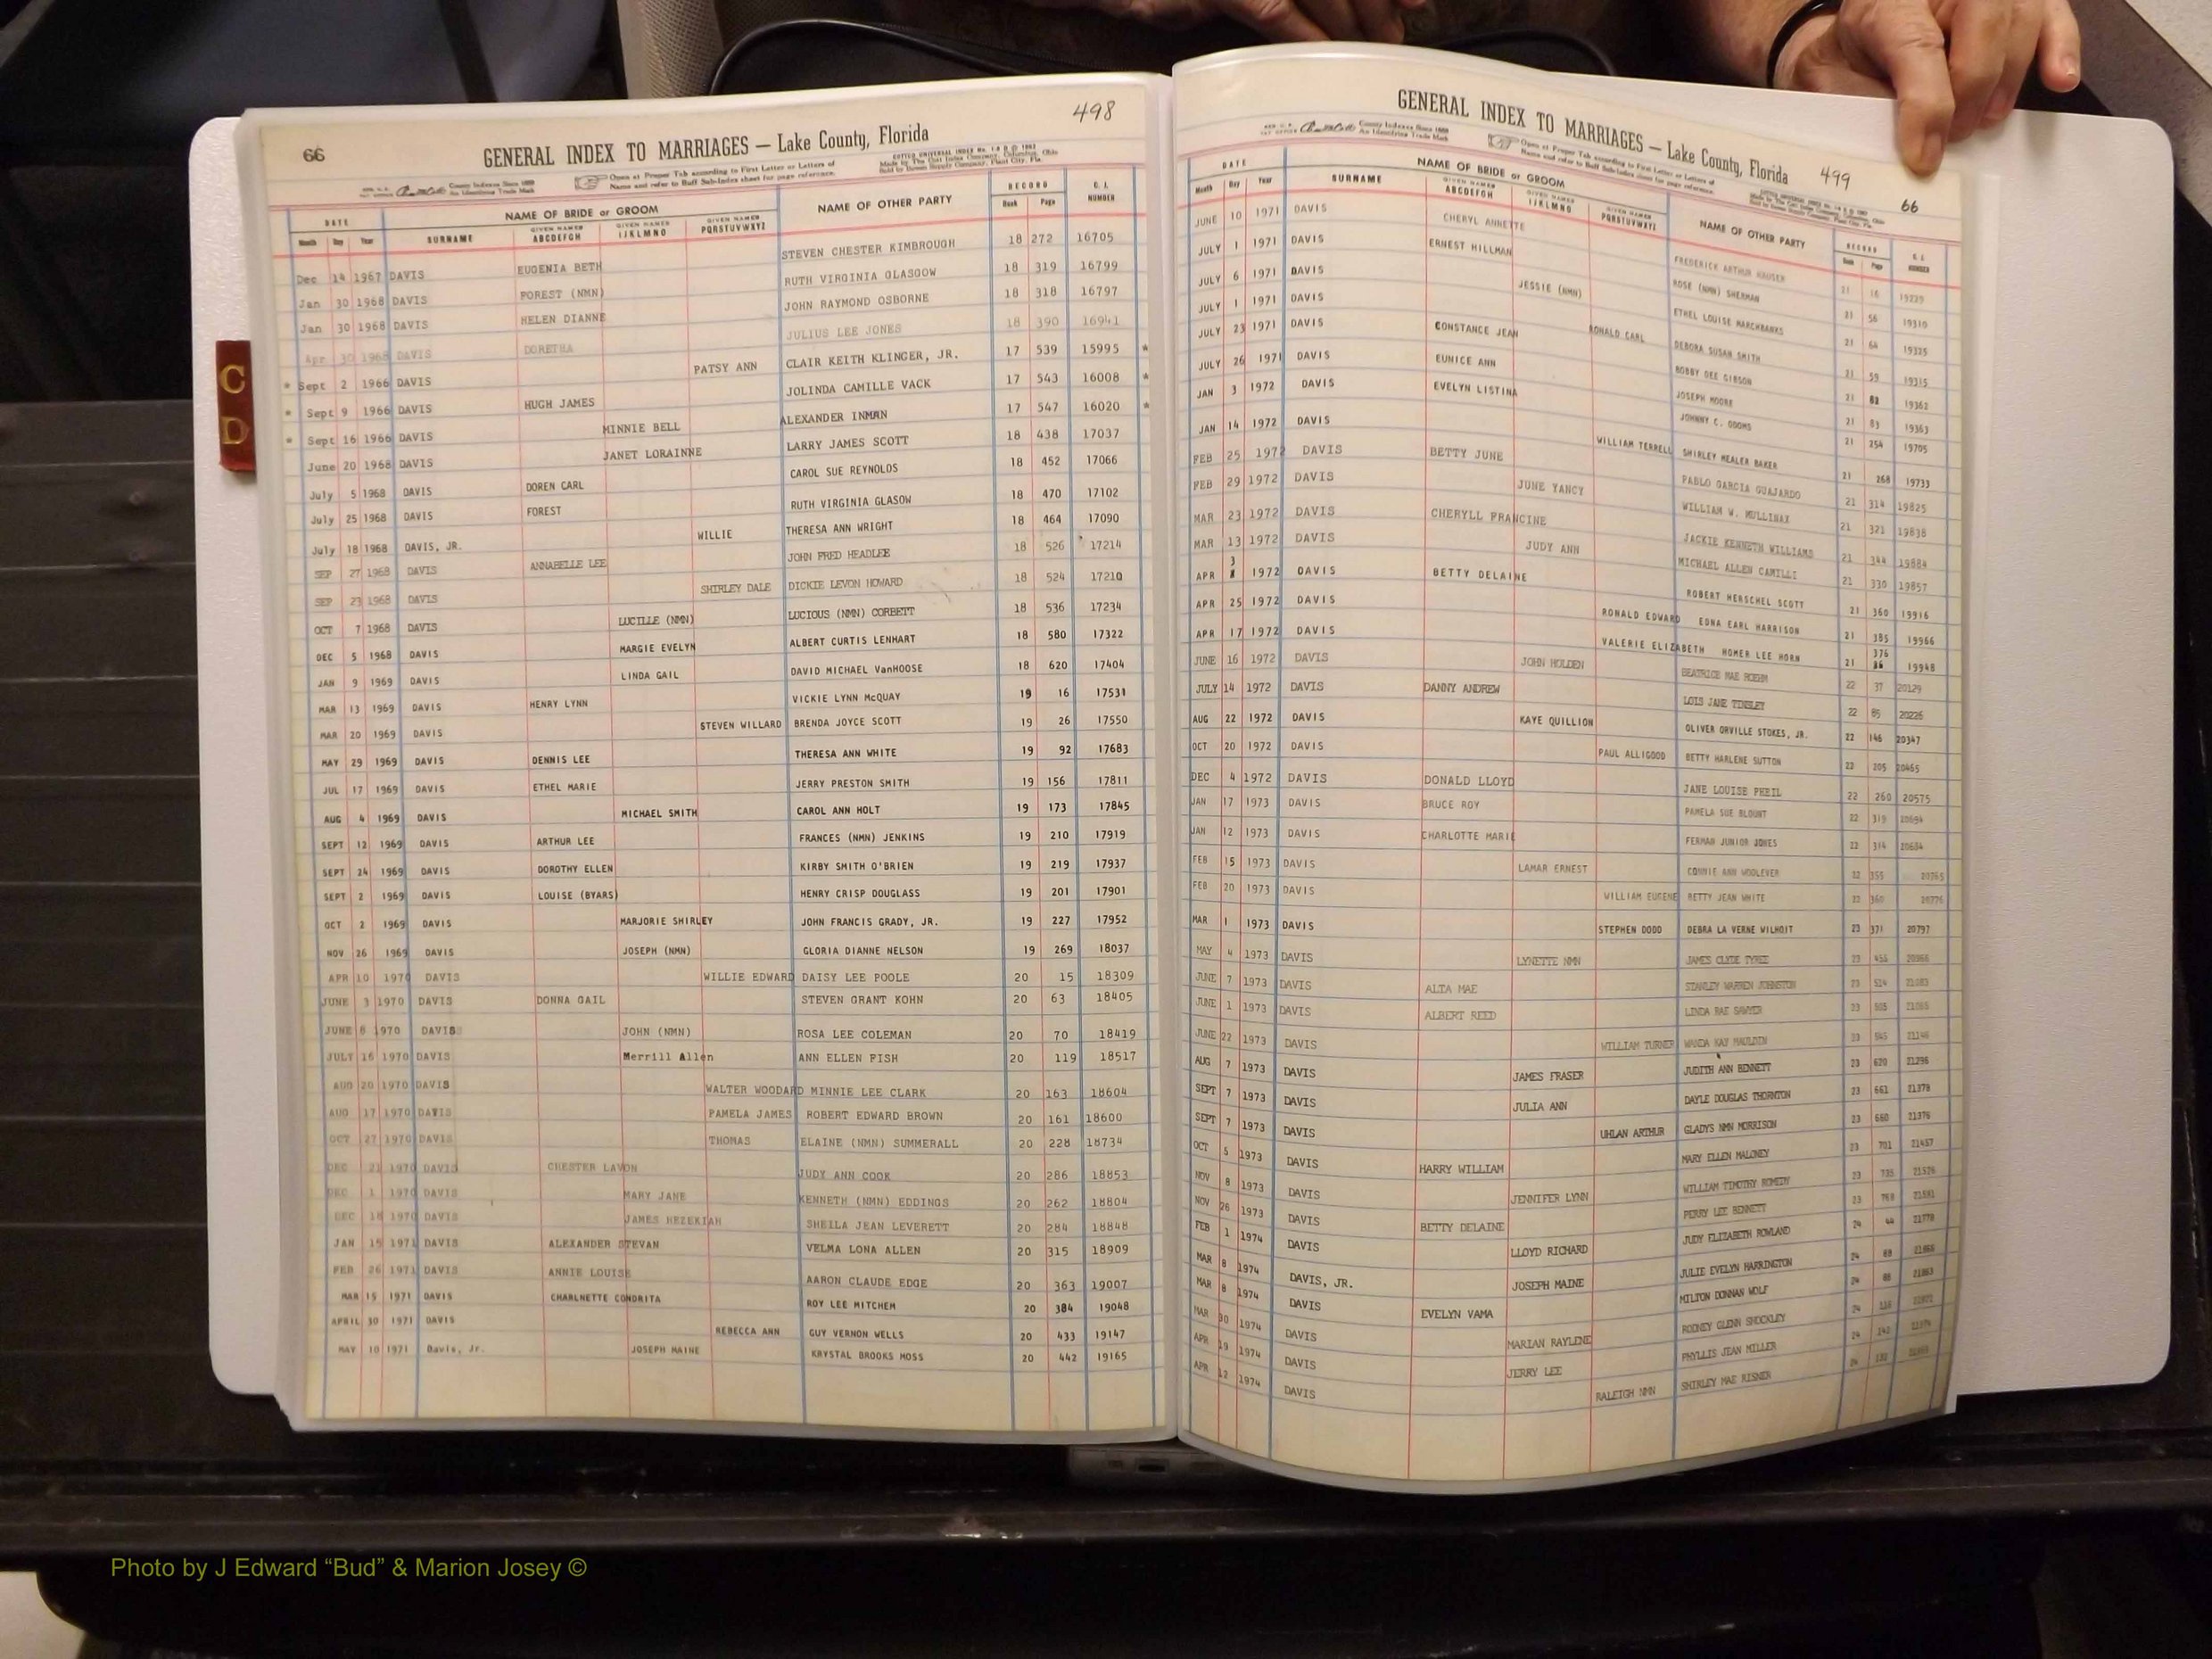 C
D
66
498
GENERAL INDEX TO MARRIAGES — Lake County, Florida
County Indexes Since 1888
An Identifying Trade Mark
Open at Proper Tab according to First Letter or Letters of
Name and refer to Buff Sub-Index sheet for page reference.
DATE NAME OF BRIDE or GROOM NAME OF OTHER PARTY RECORD C. I. NUMBER
Month Day Year SURNAME GIVEN NAMES ABCDEFGH GIVEN NAMES IJKLMNO GIVEN NAMES PQRSTUVWXYZ Book Page
Dec 14 1967 DAVIS EUGENIA BETH STEVEN CHESTER KIMBROUGH 18 272 16705
Jan 30 1968 DAVIS FOREST (NMN) RUTH VIRGINIA GLASGOW 18 319 16799
Jan 30 1968 DAVIS HELEN DIANNE JOHN RAYMOND OSBORNE 18 318 16797
Apr 30 1968 DAVIS DORETHA JULIUS LEE JONES 18 390 16941
* Sept 2 1966 DAVIS PATSY ANN CLAIR KEITH KLINGER, JR. 17 539 15995 *
* Sept 9 1966 DAVIS HUGH JAMES JOLINDA CAMILLE VACK 17 543 16008 *
* Sept 16 1966 DAVIS MINNIE BELL ALEXANDER INMAN 17 547 16020 *
June 20 1968 DAVIS JANET LORAINNE LARRY JAMES SCOTT 18 438 17037
July 5 1968 DAVIS DOREN CARL CAROL SUE REYNOLDS 18 452 17066
July 25 1968 DAVIS FOREST RUTH VIRGINIA GLASOW 18 470 17102
July 18 1968 DAVIS, JR. WILLIE THERESA ANN WRIGHT 18 464 17090
SEP 27 1968 DAVIS ANNABELLE LEE JOHN FRED HEADLEE 18 526 17214
SEP 23 1968 DAVIS SHIRLEY DALE DICKIE LEVON HOWARD 18 524 17210
OCT 7 1968 DAVIS LUCILLE (NMN) LUCIOUS (NMN) CORBETT 18 536 17234
DEC 5 1968 DAVIS MARGIE EVELYN ALBERT CURTIS LENHART 18 580 17322
JAN 9 1969 DAVIS LINDA GAIL DAVID MICHAEL VanHOOSE 18 620 17404
MAR 13 1969 DAVIS HENRY LYNN VICKIE LYNN McQUAY 19 16 17531
MAR 20 1969 DAVIS STEVEN WILLARD BRENDA JOYCE SCOTT 19 26 17550
MAY 29 1969 DAVIS DENNIS LEE THERESA ANN WHITE 19 92 17683
JUL 17 1969 DAVIS ETHEL MARIE JERRY PRESTON SMITH 19 156 17811
AUG 4 1969 DAVIS MICHAEL SMITH CAROL ANN HOLT 19 173 17845
SEPT 12 1969 DAVIS ARTHUR LEE FRANCES (NMN) JENKINS 19 210 17919
SEPT 24 1969 DAVIS DOROTHY ELLEN KIRBY SMITH O'BRIEN 19 219 17937
SEPT 2 1969 DAVIS LOUISE (BYARS) HENRY CRISP DOUGLASS 19 201 17901
OCT 2 1969 DAVIS MARJORIE SHIRLEY JOHN FRANCIS GRADY, JR. 19 227 17952
NOV 26 1969 DAVIS JOSEPH (NMN) GLORIA DIANNE NELSON 19 269 18037
APR 10 1970 DAVIS WILLIE EDWARD DAISY LEE POOLE 20 15 18309
JUNE 3 1970 DAVIS DONNA GAIL STEVEN GRANT KOHN 20 63 18405
JUNE 6 1970 DAVIS JOHN (NMN) ROSA LEE COLEMAN 20 70 18419
JULY 16 1970 DAVIS Merrill Allen ANN ELLEN FISH 20 119 18517
AUG 20 1970 DAVIS WALTER WOODARD MINNIE LEE CLARK 20 163 18604
AUG 17 1970 DAVIS PAMELA JAMES ROBERT EDWARD BROWN 20 161 18600
OCT 27 1970 DAVIS THOMAS ELAINE (NMN) SUMMERALL 20 228 18734
DEC 21 1970 DAVIS CHESTER LAVON JUDY ANN COOK 20 286 18853
DEC 1 1970 DAVIS MARY JANE KENNETH (NMN) EDDINGS 20 262 18804
DEC 18 1970 DAVIS JAMES HEZEKIAH SHEILA JEAN LEVERETT 20 284 18848
JAN 15 1971 DAVIS ALEXANDER STEVAN VELMA LONA ALLEN 20 315 18909
FEB 26 1971 DAVIS ANNIE LOUISE AARON CLAUDE EDGE 20 363 19007
MAR 15 1971 DAVIS CHARLNETTE CONDRITA ROY LEE MITCHEM 20 384 19048
APRIL 30 1971 DAVIS REBECCA ANN GUY VERNON WELLS 20 433 19147
MAY 10 1971 Davis, Jr. JOSEPH MAINE KRYSTAL BROOKS MOSS 20 442 19165
GENERAL INDEX TO MARRIAGES — Lake County, Florida
499
66
County Indexes Since 1888
An Identifying Trade Mark
Open at Proper Tab according to First Letter or Letters of
Name and refer to Buff Sub-Index sheet for page reference.
DATE NAME OF BRIDE or GROOM NAME OF OTHER PARTY RECORD C. I. NUMBER
Month Day Year SURNAME GIVEN NAMES ABCDEFGH GIVEN NAMES IJKLMNO GIVEN NAMES PQRSTUVWXYZ Book Page
JUNE 10 1971 DAVIS CHERYL ANNETTE FREDERICK ARTHUR HAUSER 21 16 19229
JULY 1 1971 DAVIS ERNEST HILLMAN ROSE (NMN) SHERMAN 21 56 19310
JULY 6 1971 DAVIS JESSIE (NMN) ETHEL LOUISE MARCHBANKS 21 64 19325
JULY 1 1971 DAVIS RONALD CARL DEBORA SUSAN SMITH 21 59 19315
JULY 23 1971 DAVIS CONSTANCE JEAN BOBBY DEE GIBSON 21 82 19362
JULY 26 1971 DAVIS EUNICE ANN JOSEPH MOORE 21 83 19363
JAN 3 1972 DAVIS EVELYN LISTINA JOHNNY C. ODOMS 21 254 19705
JAN 14 1972 DAVIS WILLIAM TERRELL SHIRLEY MEALER BAKER 21 268 19733
FEB 25 1972 DAVIS BETTY JUNE PABLO GARCIA GUAJARDO 21 314 19825
FEB 29 1972 DAVIS JUNE YANCY WILLIAM W. MULLINAX 21 321 19838
MAR 23 1972 DAVIS CHERYLL FRANCINE JACKIE KENNETH WILLIAMS 21 344 19884
MAR 13 1972 DAVIS JUDY ANN MICHAEL ALLEN CAMILLI 21 330 19857
APR 3 1972 DAVIS BETTY DELAINE ROBERT HERSCHEL SCOTT 21 360 19916
APR 25 1972 DAVIS RONALD EDWARD EDNA EARL HARRISON 21 385 19966
APR 17 1972 DAVIS VALERIE ELIZABETH HOMER LEE HORN 21 376 19948
JUNE 16 1972 DAVIS JOHN HOLDEN BEATRICE MAE ROEHM 22 37 20129
JULY 14 1972 DAVIS DANNY ANDREW LOIS JANE TINSLEY 22 85 20226
AUG 22 1972 DAVIS KAYE QUILLION OLIVER ORVILLE STOKES, JR. 22 146 20347
OCT 20 1972 DAVIS PAUL ALLIGOOD BETTY HARLENE SUTTON 22 205 20465
DEC 4 1972 DAVIS DONALD LLOYD JANE LOUISE PHEIL 22 260 20575
JAN 17 1973 DAVIS BRUCE ROY PAMELA SUE BLOUNT 22 319 20694
JAN 12 1973 DAVIS CHARLOTTE MARIE FERMAN JUNIOR JONES 22 314 20684
FEB 15 1973 DAVIS LAMAR ERNEST CONNIE ANN WOOLEVER 22 355 20765
FEB 20 1973 DAVIS WILLIAM EUGENE BETTY JEAN WHITE 22 360 20776
MAR 1 1973 DAVIS STEPHEN DODD DEBRA LA VERNE WILHOIT 23 371 20797
MAY 4 1973 DAVIS LYNETTE NMN JAMES CLYDE TYREE 23 455
JUNE 7 1973 DAVIS ALTA MAE STANLEY WARREN JOHNSTON 23 514 21083
JUNE 1 1973 DAVIS ALBERT REED LINDA RAE SAWYER 23 505 21065
JUNE 22 1973 DAVIS WILLIAM TURNER WANDA KAY MAULDIN 23 545 21146
AUG 7 1973 DAVIS JAMES FRASER JUDITH ANN BENNETT 23 620 21296
SEPT 7 1973 DAVIS JULIA ANN DAYLE DOUGLAS THORNTON 23 661 21378
SEPT 7 1973 DAVIS UHLAN ARTHUR GLADYS NMN MORRISON 23 660 21376
OCT 5 1973 DAVIS HARRY WILLIAM MARY ELLEN MALONEY 23 701 21457
NOV 8 1973 DAVIS JENNIFER LYNN WILLIAM TIMOTHY 23 735 21526
NOV 26 1973 DAVIS BETTY DELAINE PERRY LEE BENNETT 23 768 21591
FEB 1 1974 DAVIS LLOYD RICHARD JUDY ELIZABETH ROWLAND 24 44 21778
MAR 8 1974 DAVIS, JR. JOSEPH MAINE JULIE EVELYN HARRINGTON 24 89 21866
MAR 8 1974 DAVIS EVELYN VAMA MILTON DONNAN WOLF 24 88 21863
MAR 30 1974 DAVIS MARIAN RAYLENE RODNEY GLENN SHOCKLEY 24
APR 19 1974 DAVIS JERRY LEE PHYLLIS JEAN MILLER 24 142
APR 12 1974 DAVIS RALEIGH NMN SHIRLEY MAE RISNER 24 132
Photo by J Edward “Bud” & Marion Josey ©